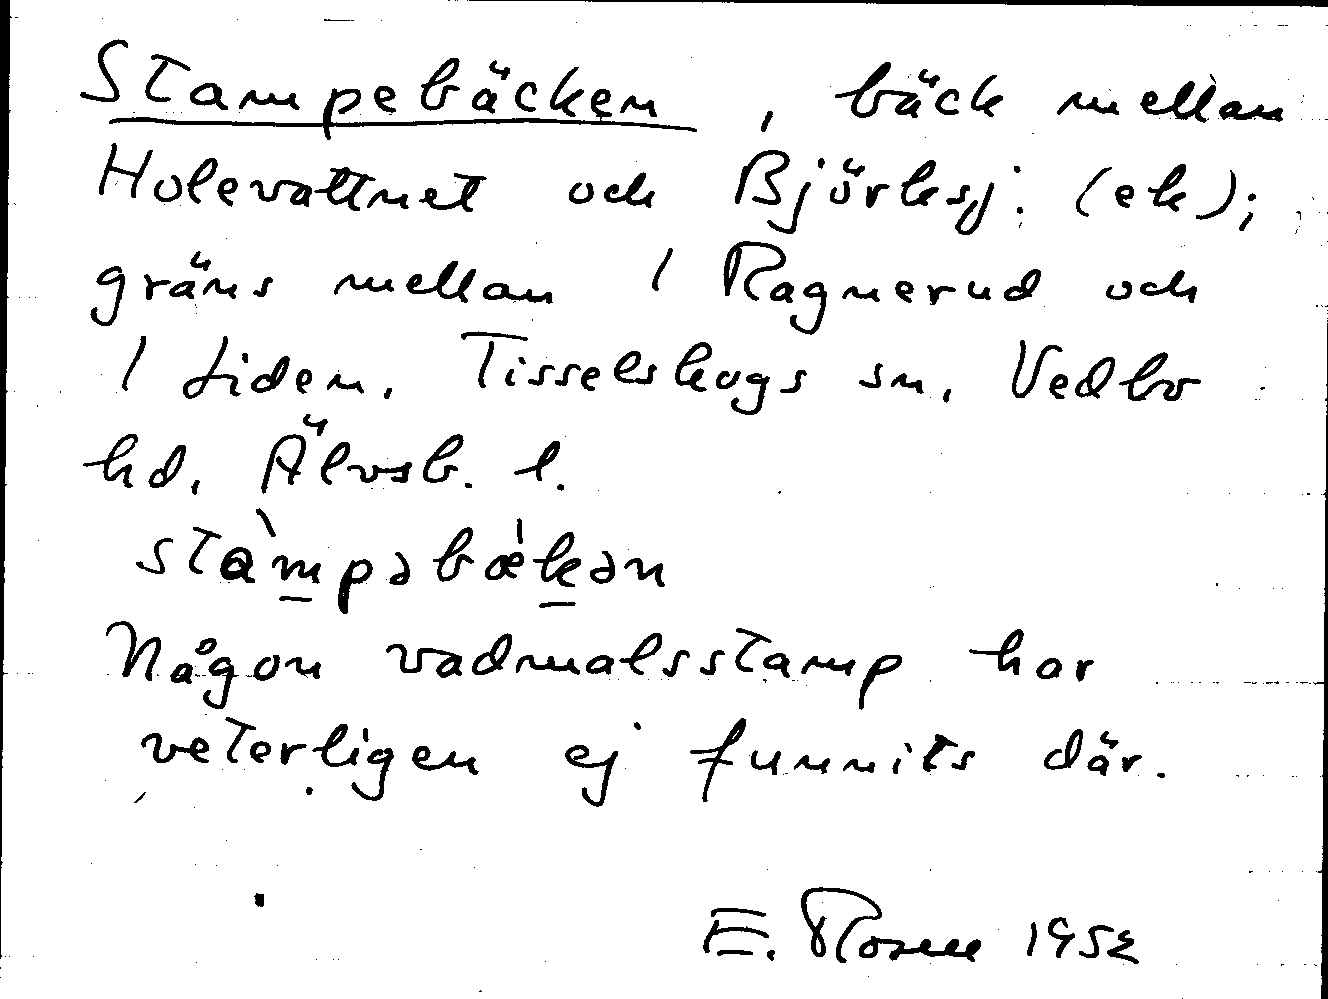 Stampebäcken, bäck mellan
Holevattnet och Björksj. (ek);
gräns mellan 1 Ragnerud och
1 Liden, Tisselskogs sn, Vedbo
hd, Älvsb. l.
stàmpəbǽkən
Någon vadmalsstamp har
veterligen ej funnits där.
E. Rosell 1952